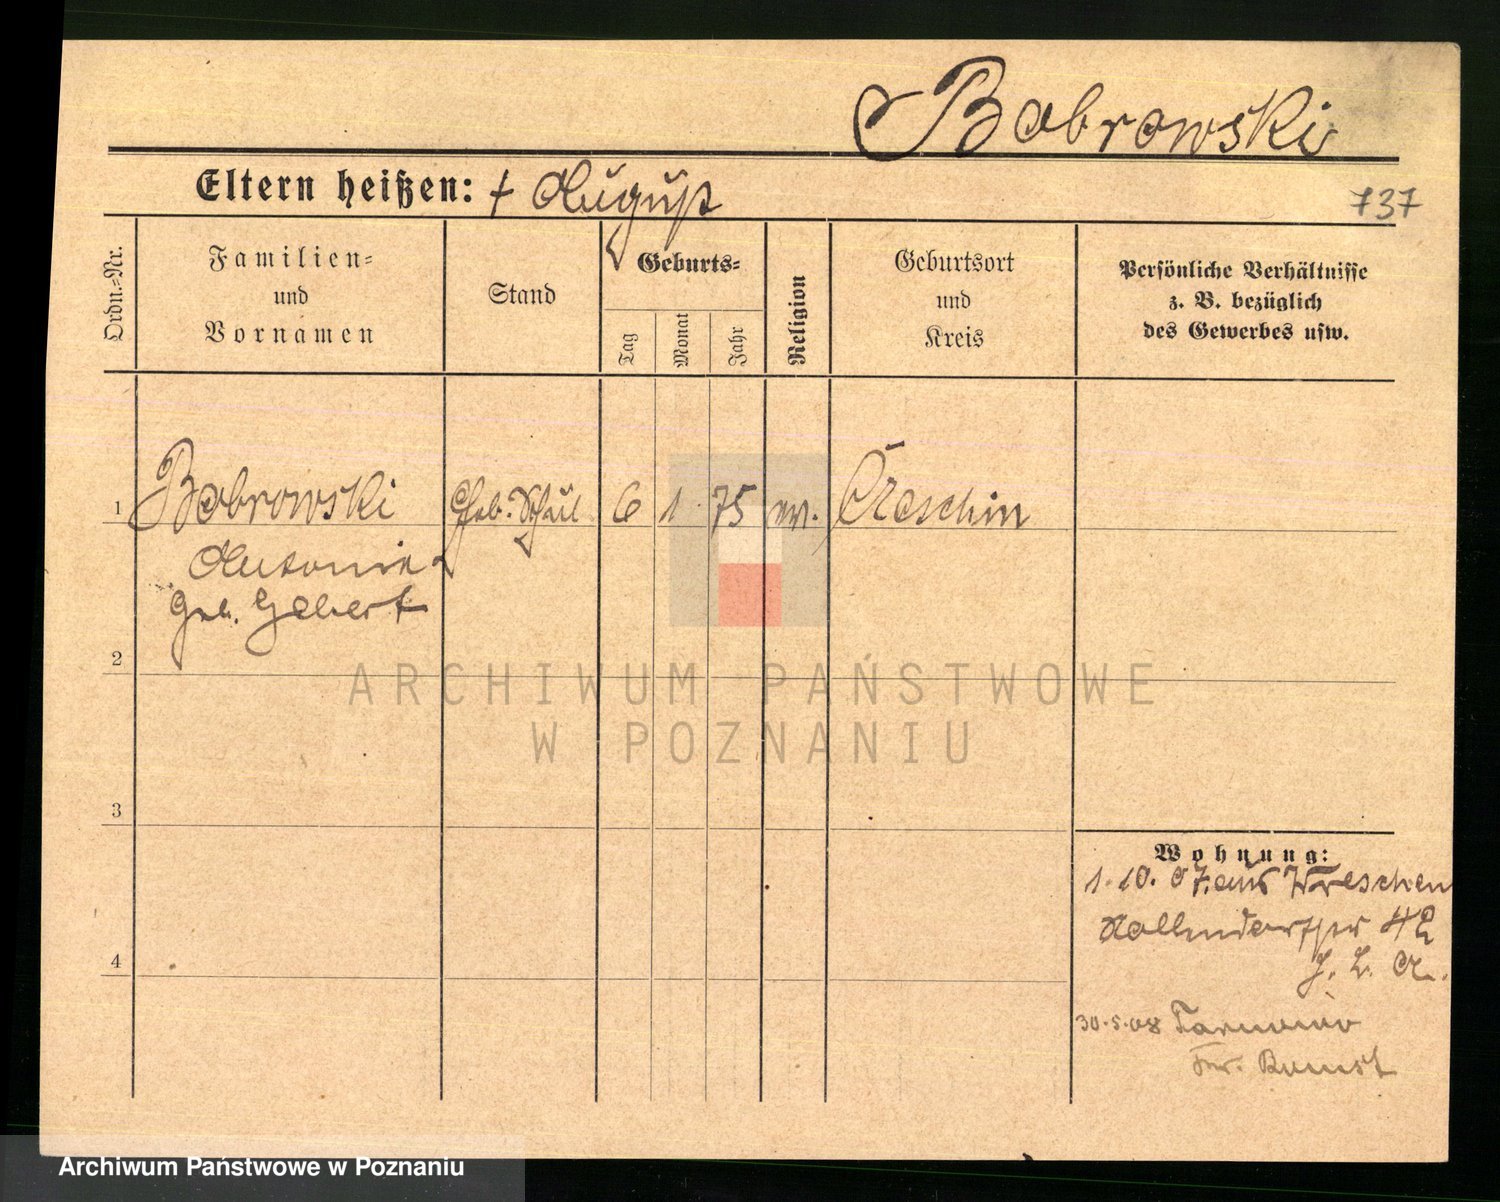 Bobrowski
Eltern heißen: † August
737
Ordn.-Nr.
Familien-
und
Vornamen
Stand
Geburts-
Tag
Monat
Jahr
Religion
Geburtsort
und
Kreis
Persönliche Verhältnisse
z. B. bezüglich
des Gewerbes usw.
1 Bobrowski 6 1. 75
Antonie
geb. Gebert
2
ARCHIWUM PAŃSTWOWE
W POZNANIU
3
Wohnung:
1. 10. 07. aus Wreschen
Nollendorffer 42
4
30.5.08 Tarnowo
Kr. Bomst
Archiwum Państwowe w Poznaniu